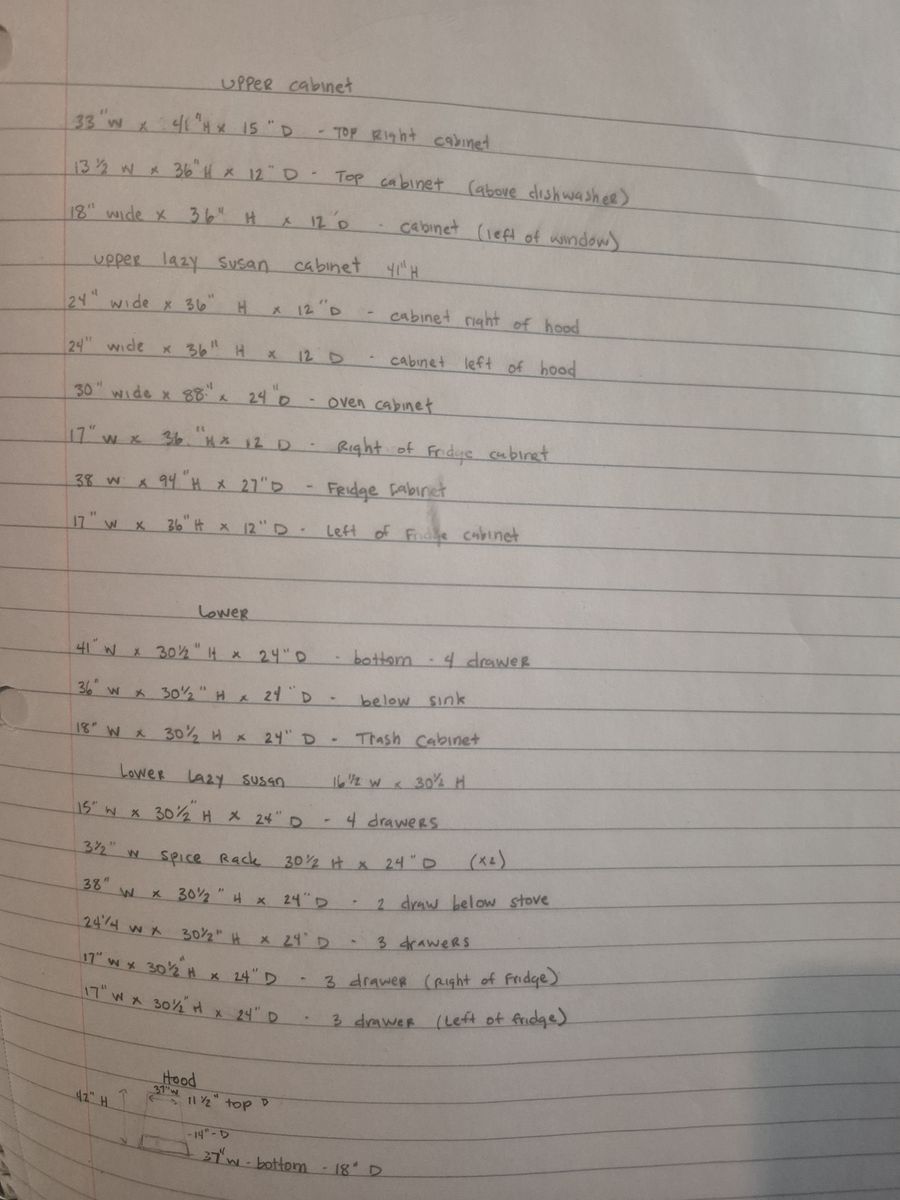 UPPER cabinet
33"W x 41"H x 15"D - TOP Right cabinet
13 1/2 W x 36"H x 12"D - Top cabinet (above dishwasher)
18" wide x 36" H x 12"D - cabinet (left of window)
upper lazy susan cabinet 41"H
24" wide x 36" H x 12"D - cabinet right of hood
24" wide x 36" H x 12 D - cabinet left of hood
30" wide x 88" x 24"D - oven cabinet
17"W x 36."H x 12 D - Right of Fridge cabinet
38 W x 94"H x 27"D - Fridge Cabinet
17"W x 36"H x 12"D - Left of Fridge cabinet
Lower
41"W x 30 1/2"H x 24"D - bottom - 4 drawer
36"W x 30 1/2"H x 24"D - below sink
18"W x 30 1/2 H x 24"D - Trash Cabinet
Lower Lazy susan 16 1/2 W x 30 1/2 H
15"W x 30 1/2"H x 24"D - 4 drawers
3 1/2"W spice Rack 30 1/2 H x 24"D (x2)
38"W x 30 1/2"H x 24"D - 2 draw below stove
24 1/4 W x 30 1/2"H x 24"D - 3 drawers
17"W x 30 1/2"H x 24"D - 3 drawer (Right of Fridge)
17"W x 30 1/2"H x 24"D - 3 drawer (Left of fridge)
Hood
42"H 11 1/2" top D
-14"-D
37"W - bottom - 18" D